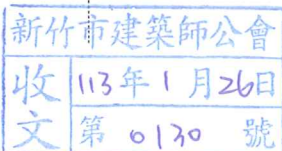 新竹市建築師公會
收文
113年1月26日
第 0130 號